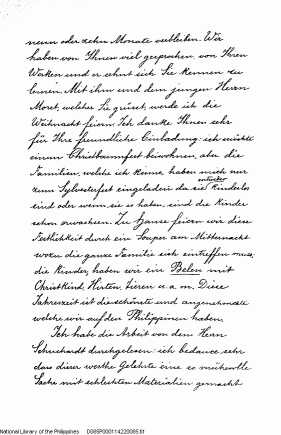 neun oder zehn Monate verbleiben. Wir
haben von Ihnen viel gesprochen, von Ihren
Werken und er sehnt sich Sie kennen zu
lernen. Mit ihm und dem jungen Herrn
Moret, welcher Sie grüsst, werde ich die
Weihnacht feiern. Ich danke Ihnen sehr
für Ihre freundliche Einladung: ich möchte
einem Christbaumfest beiwohnen, aber die
Familien, welche ich kenne haben mich nur
zum Sylvesterfest eingeladen da sie entweder kinderlos
sind oder wenn sie es haben, sind die Kinder
schon erwachsen. Zu Hause feiern wir diese
Festlichkeit durch ein Souper am Mitternacht
wozu die ganze Familie sich eintreffen muss;
die Kinder, haben wir ein Belen mit
Christkind, Hirten, Tieren u. a. m. Diese
Jahreszeit ist die schönste und angenehmste
welche wir auf den Philippinen haben.
Ich habe die Arbeit von dem Herrn
Schuchardt durchgelesen: ich bedaure sehr
dass dieser werthe Gelehrte eine so mühevolle
Sache mit schlechten Materialien gemacht
National Library of the Philippines